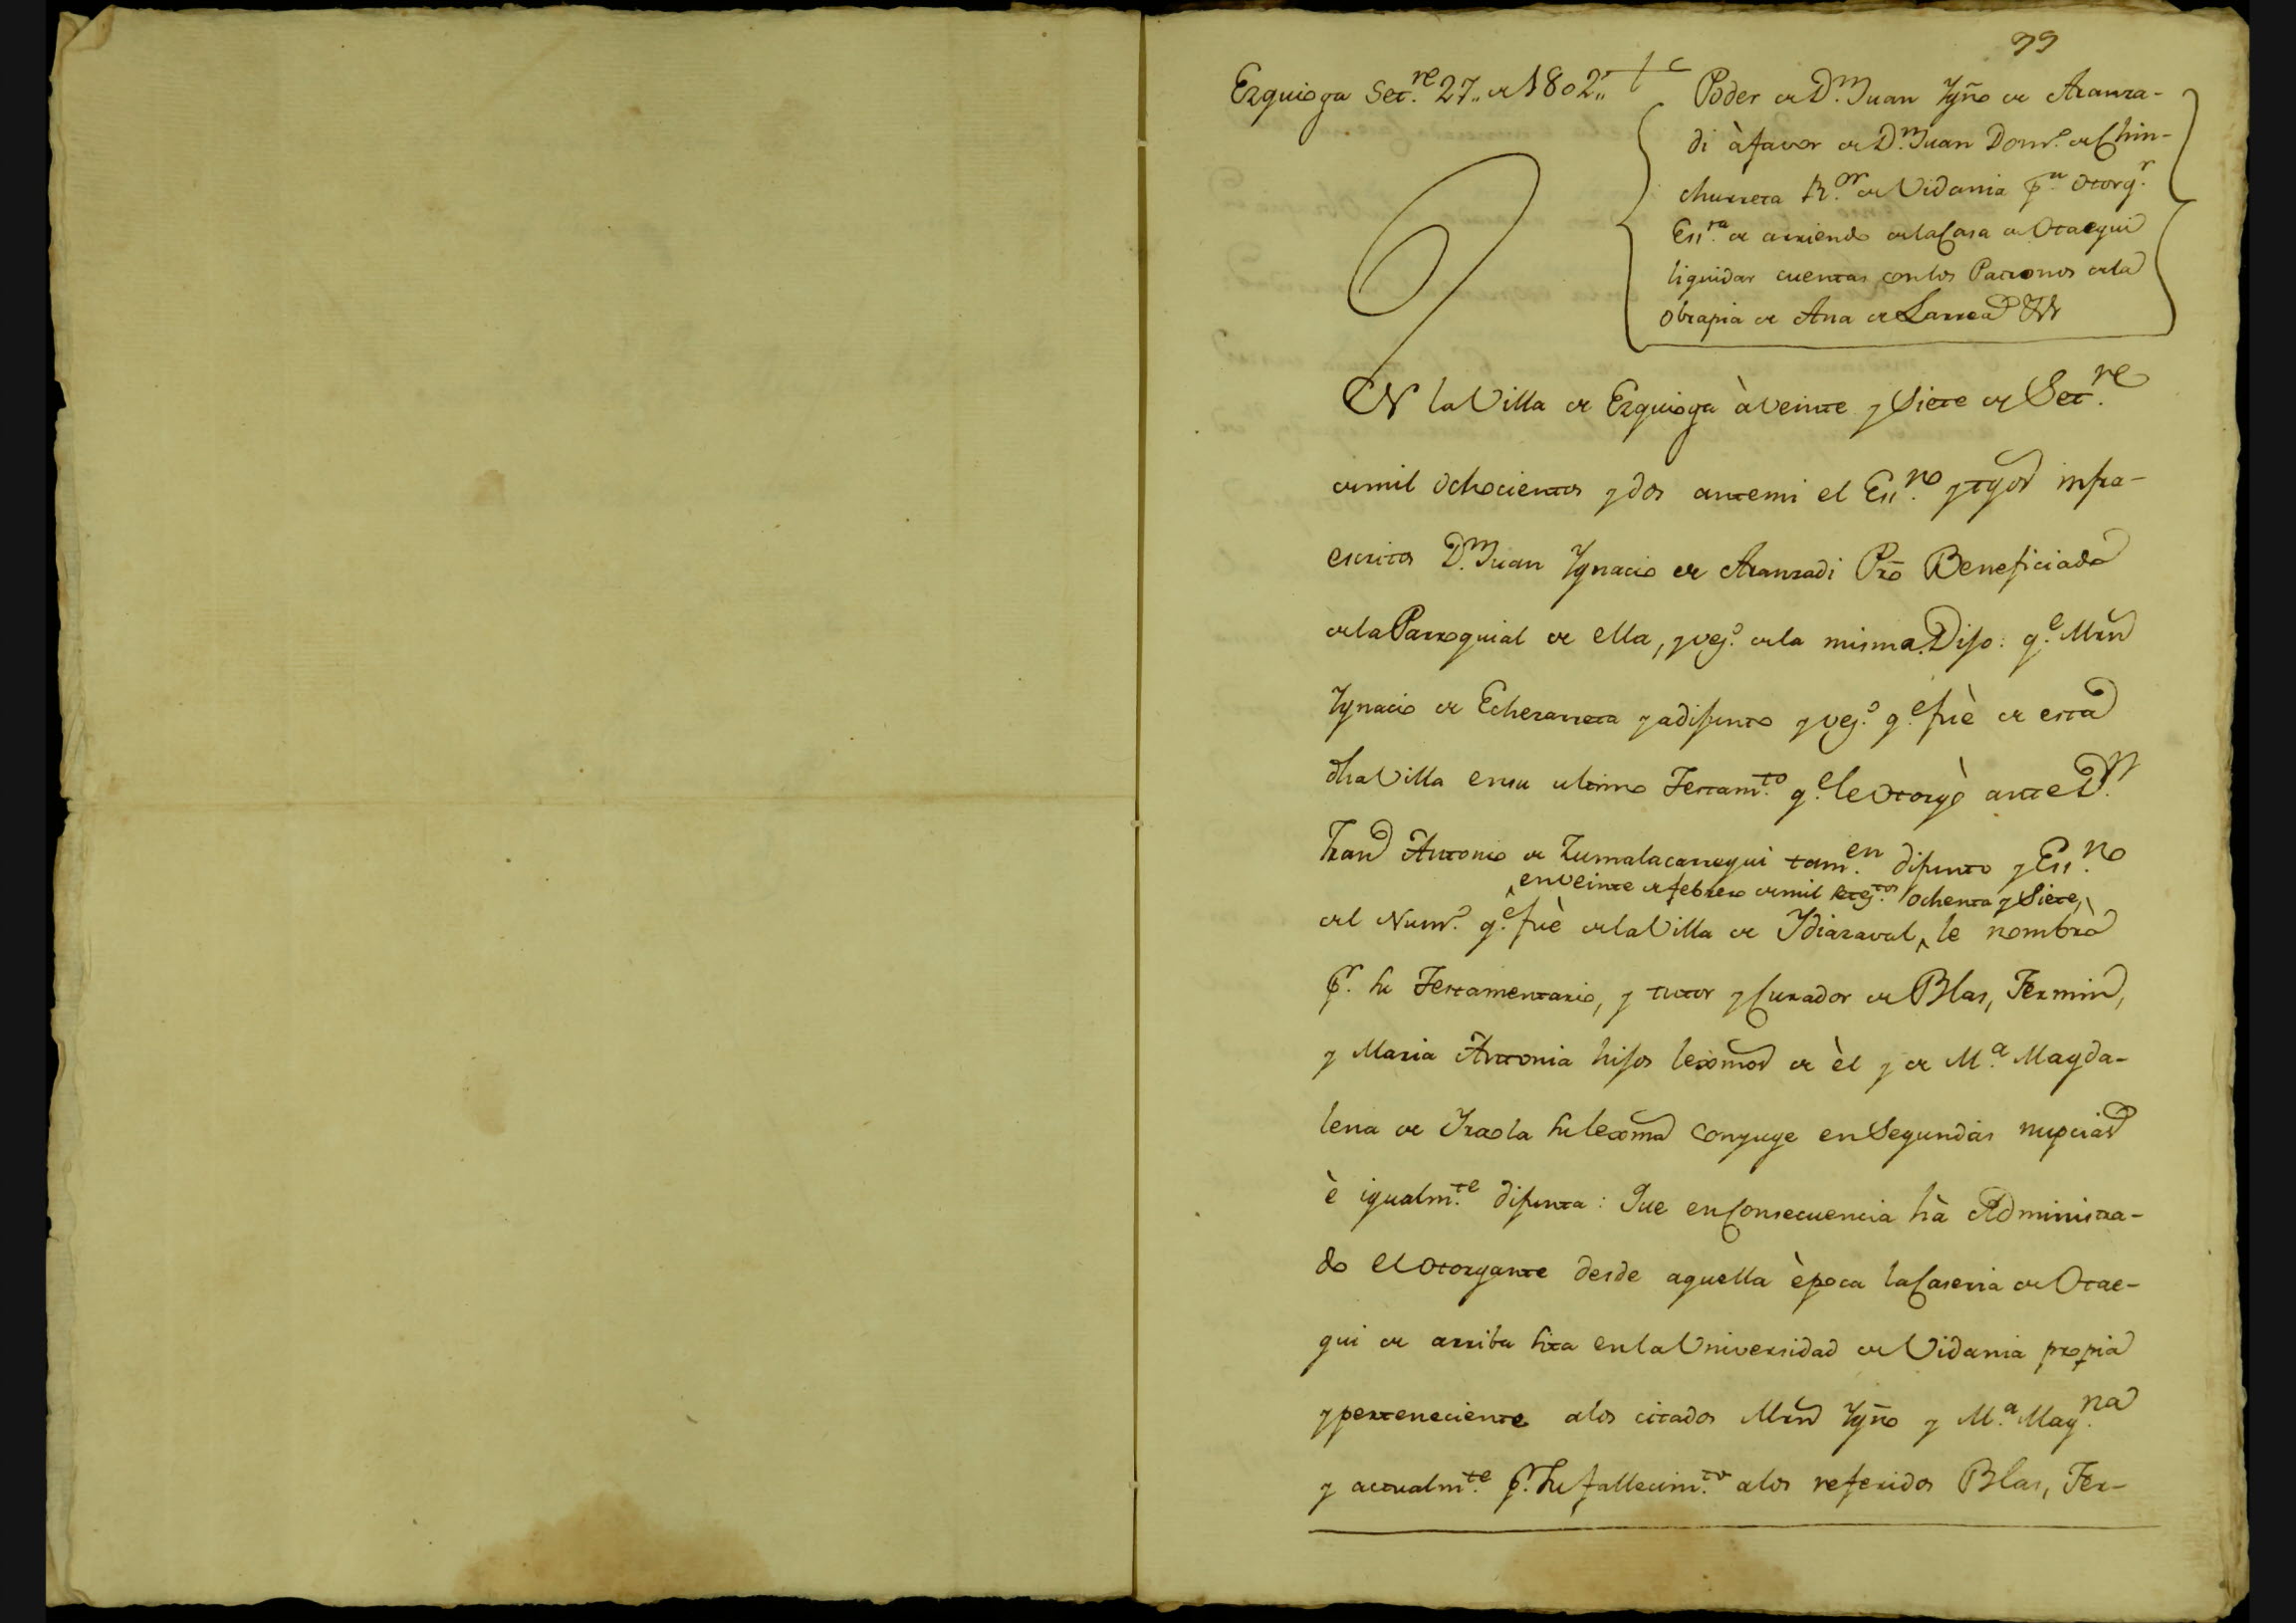 99
Ezquioga Set.re 27,, de 1802,,
Poder de D.n Juan Ygño de Aranza-
di à favor de D.n Juan Dom.o de Chin-
churreta R.or de Vidania p.a otorg.r
Ess.ra de arriendo de la Casa de Otaegui
liquidar cuentas con los Patronos de la
obrapia de Ana de Larrea &
EN la Villa de Ezquioga à veinte y Siete de Set.re
de mil ochocientos y dos ante mi el Ess.no y tgos infra-
escritos D.n Juan Ygnacio de Aranzadi Pro Beneficiado
de la Parroquial de ella, y veg.o de la misma Dijo: q.e Mrn
Ygnacio de Echezarreta ya difunto y veg.o q.e fuè de esta
dha Villa en su ultimo Testam.to q.e le otorgò ante D.n
Fran Antonio de Zumalacarregui tam.en difunto y Ess.no
en veinte de febrero de mil setec.tos ochenta y Siete,
del Num.o q.e fuè de la Villa de Ydiazaval, le nombrò
p.r su Testamentario, y tutor y Curador de Blas, Fermin,
y Maria Antonia hijos lexmos de èl y de M.a Magda-
lena de Yraola su lexma Conyuge en Segundas nupcias
è igualm.te difunta: Que en Consecuencia hà Administra-
do el otorgante desde aquella època la Caseria de Otae-
gui de arriba sita en la Universidad de Vidania propia
y perteneciente a los citados Mrn Ygño y M.a Mag.na
y actualm.te p.r su fallecim.to a los referidos Blas, Fer-